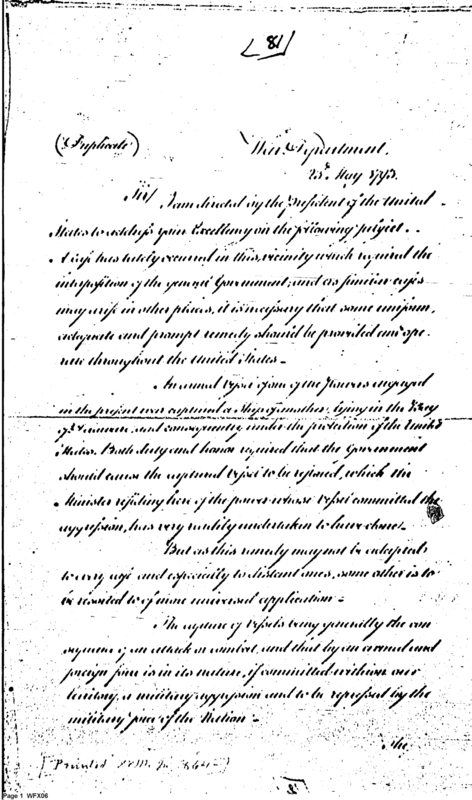 [81]
(Duplicate) War Department.
23d May 1793.
Sir/ I am directed by the President of the United
States to address your Excellency on the following subject. -
A case has lately occurred in this vicinity which required the
interposition of the general Government; and as similar cases
may arise in other places, it is necessary that some uniform,
adequate and prompt remedy should be provided and ope-
rate throughout the United States -
An armed vessel of one of the Powers engaged
in the present war captured a Ship of another, lying in the Bay
of Delaware and consequently under the protection of the United
States. Both duty and honor required that the Government
should cause the captured vessel to be restored, which the
Minister residing here of the power whose vessel committed the
aggression, has very readily undertaken to have done.
But as this remedy may not be adapted
to every case and especially to distant ones, some other is to
be resorted to of more universal application -
The capture of vessels being generally the con
sequence of an attack or combat, and that by an armed and
foreign force is in its nature, if committed within our
territory, a military aggression and to be repressed by the
military force of the Nation -
The
[Printed
Page 1 WFX06